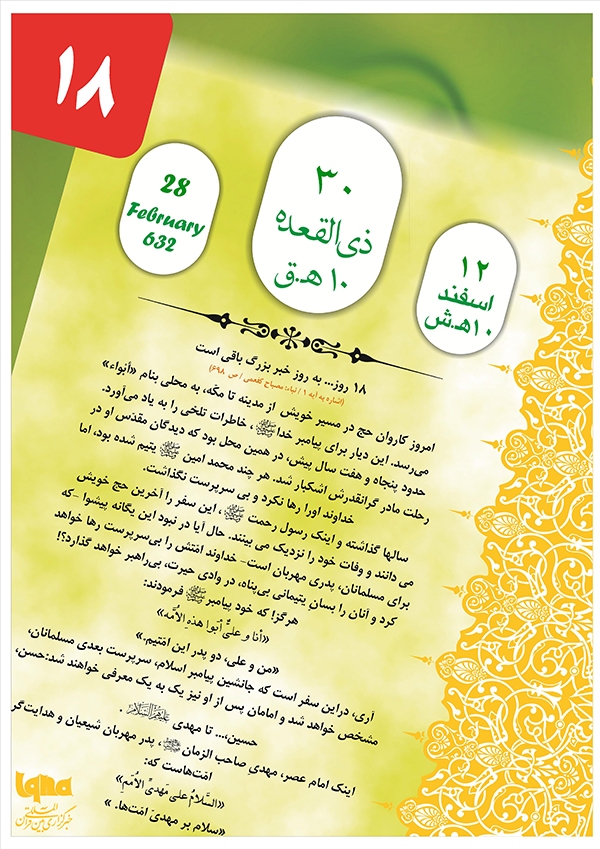 ۱۸
28
February
632
۳۰
ذی‌القعده
۱۰ هـ.ق
۱۲
اسفند
۱۰ هـ.ش
۱۸ روز... به روز خبر بزرگ باقی است
(اشاره به آیه ۱ / نباء: مصباح کفعمی / ص ۶۹۸)
امروز کاروان حج در مسیر خویش از مدینه تا مکّه، به محلی بنام «أبواء»
می‌رسد. این دیار برای پیامبر خدا ﷺ، خاطرات تلخی را به یاد می‌آورد.
حدود پنجاه و هفت سال پیش، در همین محل بود که دیدگان مقدّس او در
رحلت مادر گرانقدرش اشکبار شد. هر چند محمد امین ﷺ یتیم شده بود، اما
خداوند اورا رها نکرد و بی سرپرست نگذاشت.
سالها گذاشته و اینک رسول رحمت ﷺ، این سفر را آخرین حج خویش
می دانند و وفات خود را نزدیک می بینند. حال آیا در نبود این یگانه پیشوا -که
برای مسلمانان، پدری مهربان است- خداوند امّتش را بی‌سرپرست رها خواهد
کرد و آنان را بسانِ یتیمانی بی‌پناه، در وادی حیرت، بی‌راهبر خواهد گذارد؟!
هرگز! که خود پیامبر ﷺ فرمودند:
«أنا و علیٌّ أبَوا هذهِ الاُمَّه»
«من و علی، دو پدر این امّتیم.»
آری، دراین سفر است که جانشین پیامبر اسلام، سرپرست بعدی مسلمانان،
مشخص خواهد شد و امامان پس از او نیز یک به یک معرفی خواهند شد:حسن،
حسین،... تا مهدی علیهم‌السلام .
اینک امام عصر، مهدیِ صاحب الزمان ﷺ، پدر مهربان شیعیان و هدایت‌گر
امّت‌هاست که:
«السَّلامُ عَلی مَهدیِّ الاُمَمِ»
«سلام بر مهدیّ امّت‌ها. »
iqna
خبرگزاری بین المللی قرآن